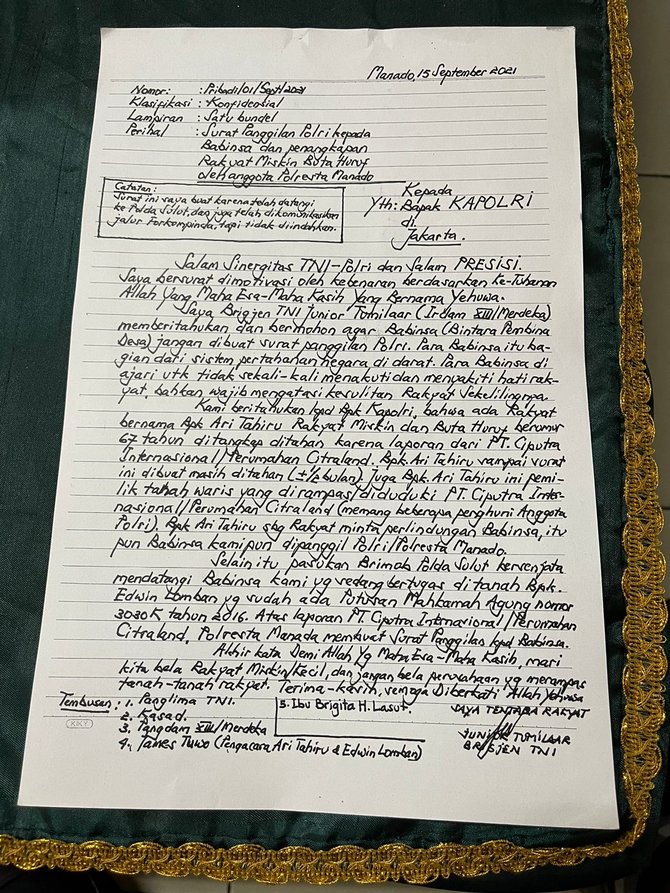 Manado, 15 September 2021
Nomor : Pribadi/01/Sept/2021
Klasifikasi : Konfidensial
Lampiran : Satu bundel
Perihal : Surat Panggilan Polri kepada
Babinsa dan penangkapan
Rakyat Miskin Buta Huruf
oleh anggota Polresta Manado
Catatan:
Surat ini saya buat karena telah datangi
ke Polda Sulut, dan juga telah dikomunikasikan
jalur Forkompinda, tapi tidak diindahkan.
Kepada
Yth: Bapak KAPOLRI
di
Jakarta.
Salam Sinergitas TNI-Polri dan Salam PRESISI.
Saya bersurat dimotivasi oleh kebenaran berdasarkan ke-Tuhanan
Allah Yang Maha Esa-Maha Kasih Yang Bernama Yehuwa.
Saya Brigjen TNI Junior Tumilaar (Irdam XIII/Merdeka)
memberitahukan dan bermohon agar Babinsa (Bintara Pembina
Desa) jangan dibuat surat panggilan Polri. Para Babinsa itu ba-
gian dari sistem pertahanan negara di darat. Para Babinsa di
ajari utk tidak sekali-kali menakuti dan menyakiti hati rak-
yat, bahkan wajib mengatasi kesulitan Rakyat Sekelilingnya.
Kami beritahukan kpd Bpk Kapolri, bahwa ada Rakyat
bernama Bpk Ari Tahiru Rakyat Miskin dan Buta Huruf berumur
67 tahun ditangkap ditahan karena laporan dari PT. Ciputra
Internasional/Perumahan Citraland. Bpk. Ari Tahiru sampai surat
ini dibuat masih ditahan (±1/2 bulan) juga Bpk. Ari Tahiru ini pemi-
lik tanah waris yang dirampas/diduduki PT. Ciputra Inter-
nasional/Perumahan Citraland (memang beberapa penghuni Anggota
Polri). Bpk Ari Tahiru sbg Rakyat minta perlindungan Babinsa, itu
pun Babinsa kamipun dipanggil Polri/Polresta Manado.
Selain itu, pasukan Brimob Polda Sulut bersenjata
mendatangi Babinsa kami yg sedang bertugas di tanah Bpk.
Edwin Lomban yg sudah ada Putusan Mahkamah Agung nomor
3030K tahun 2016. Atas laporan PT. Ciputra Internasional/Perumahan
Citraland, Polresta Manado membuat Surat Panggilan kpd Babinsa.
Akhir kata Demi Allah Yg Maha Esa-Maha Kasih, mari
kita bela Rakyat Miskin/Kecil, dan jangan bela perusahaan yg merampas
tanah-tanah rakyat. Terima-kasih, semoga Diberkati Allah Yehuwa
Tembusan : 1. Panglima TNI.
2. Kasad.
3. Pangdam XIII/Merdeka
4. James Tuwo (Pengacara Ari Tahiru & Edwin Lomban)
5. Ibu Brigita H. Lasut.
SAYA TENTARA RAKYAT
JUNIOR TUMILAAR
BRIGJEN TNI
KIKY